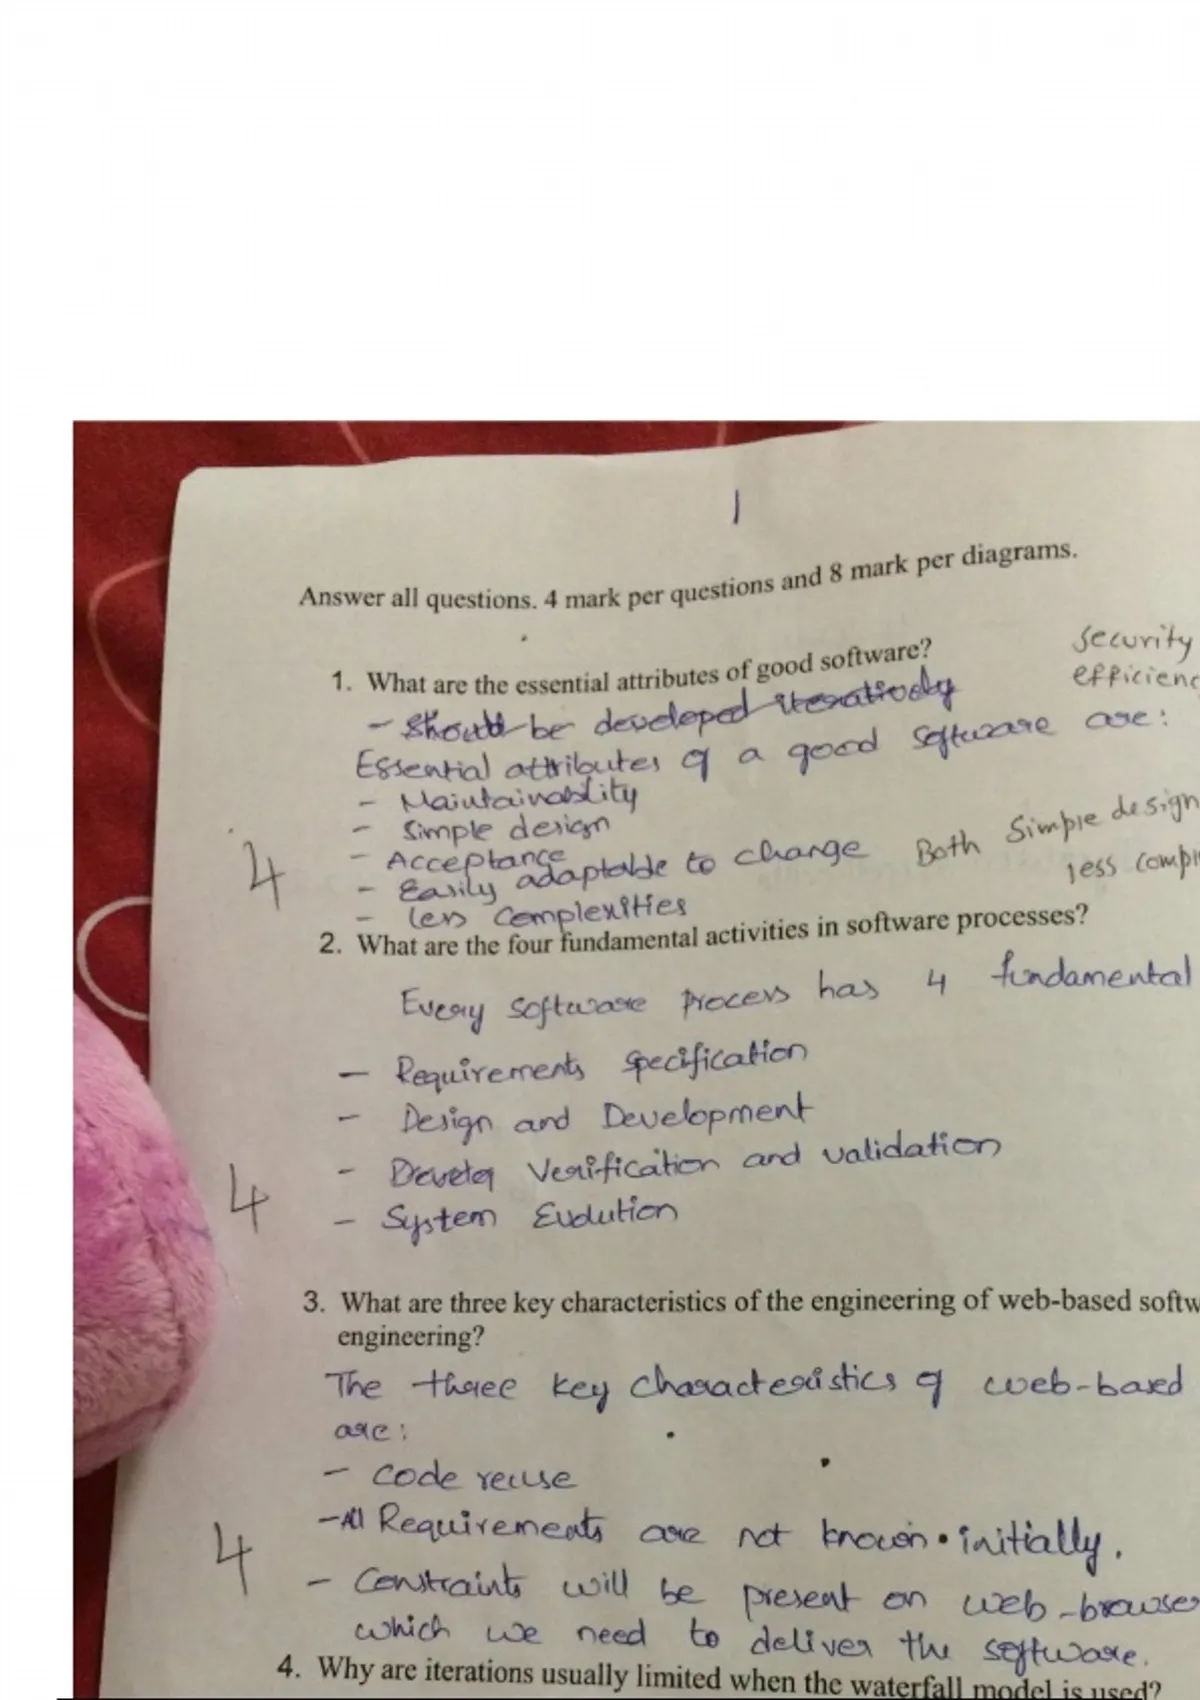 1
Answer all questions. 4 mark per questions and 8 mark per diagrams.
1. What are the essential attributes of good software?
security
efficienc
- Should be developed iteratively
Essential attributes of a good software are:
- Maintainability
- Simple design
- Acceptance
- Easily adaptable to change
Both Simple design
less compl
- less complexities
4
2. What are the four fundamental activities in software processes?
Every software process has 4 fundamental
- Requirements specification
- Design and Development
- Develop Verification and validation
- System Evolution
4
3. What are three key characteristics of the engineering of web-based softw
engineering?
The three key characteristics of web-based
are:
- code reuse
- All Requirements are not known initially.
- Constraints will be present on web-browser
which we need to deliver the software.
4
4. Why are iterations usually limited when the waterfall model is used?